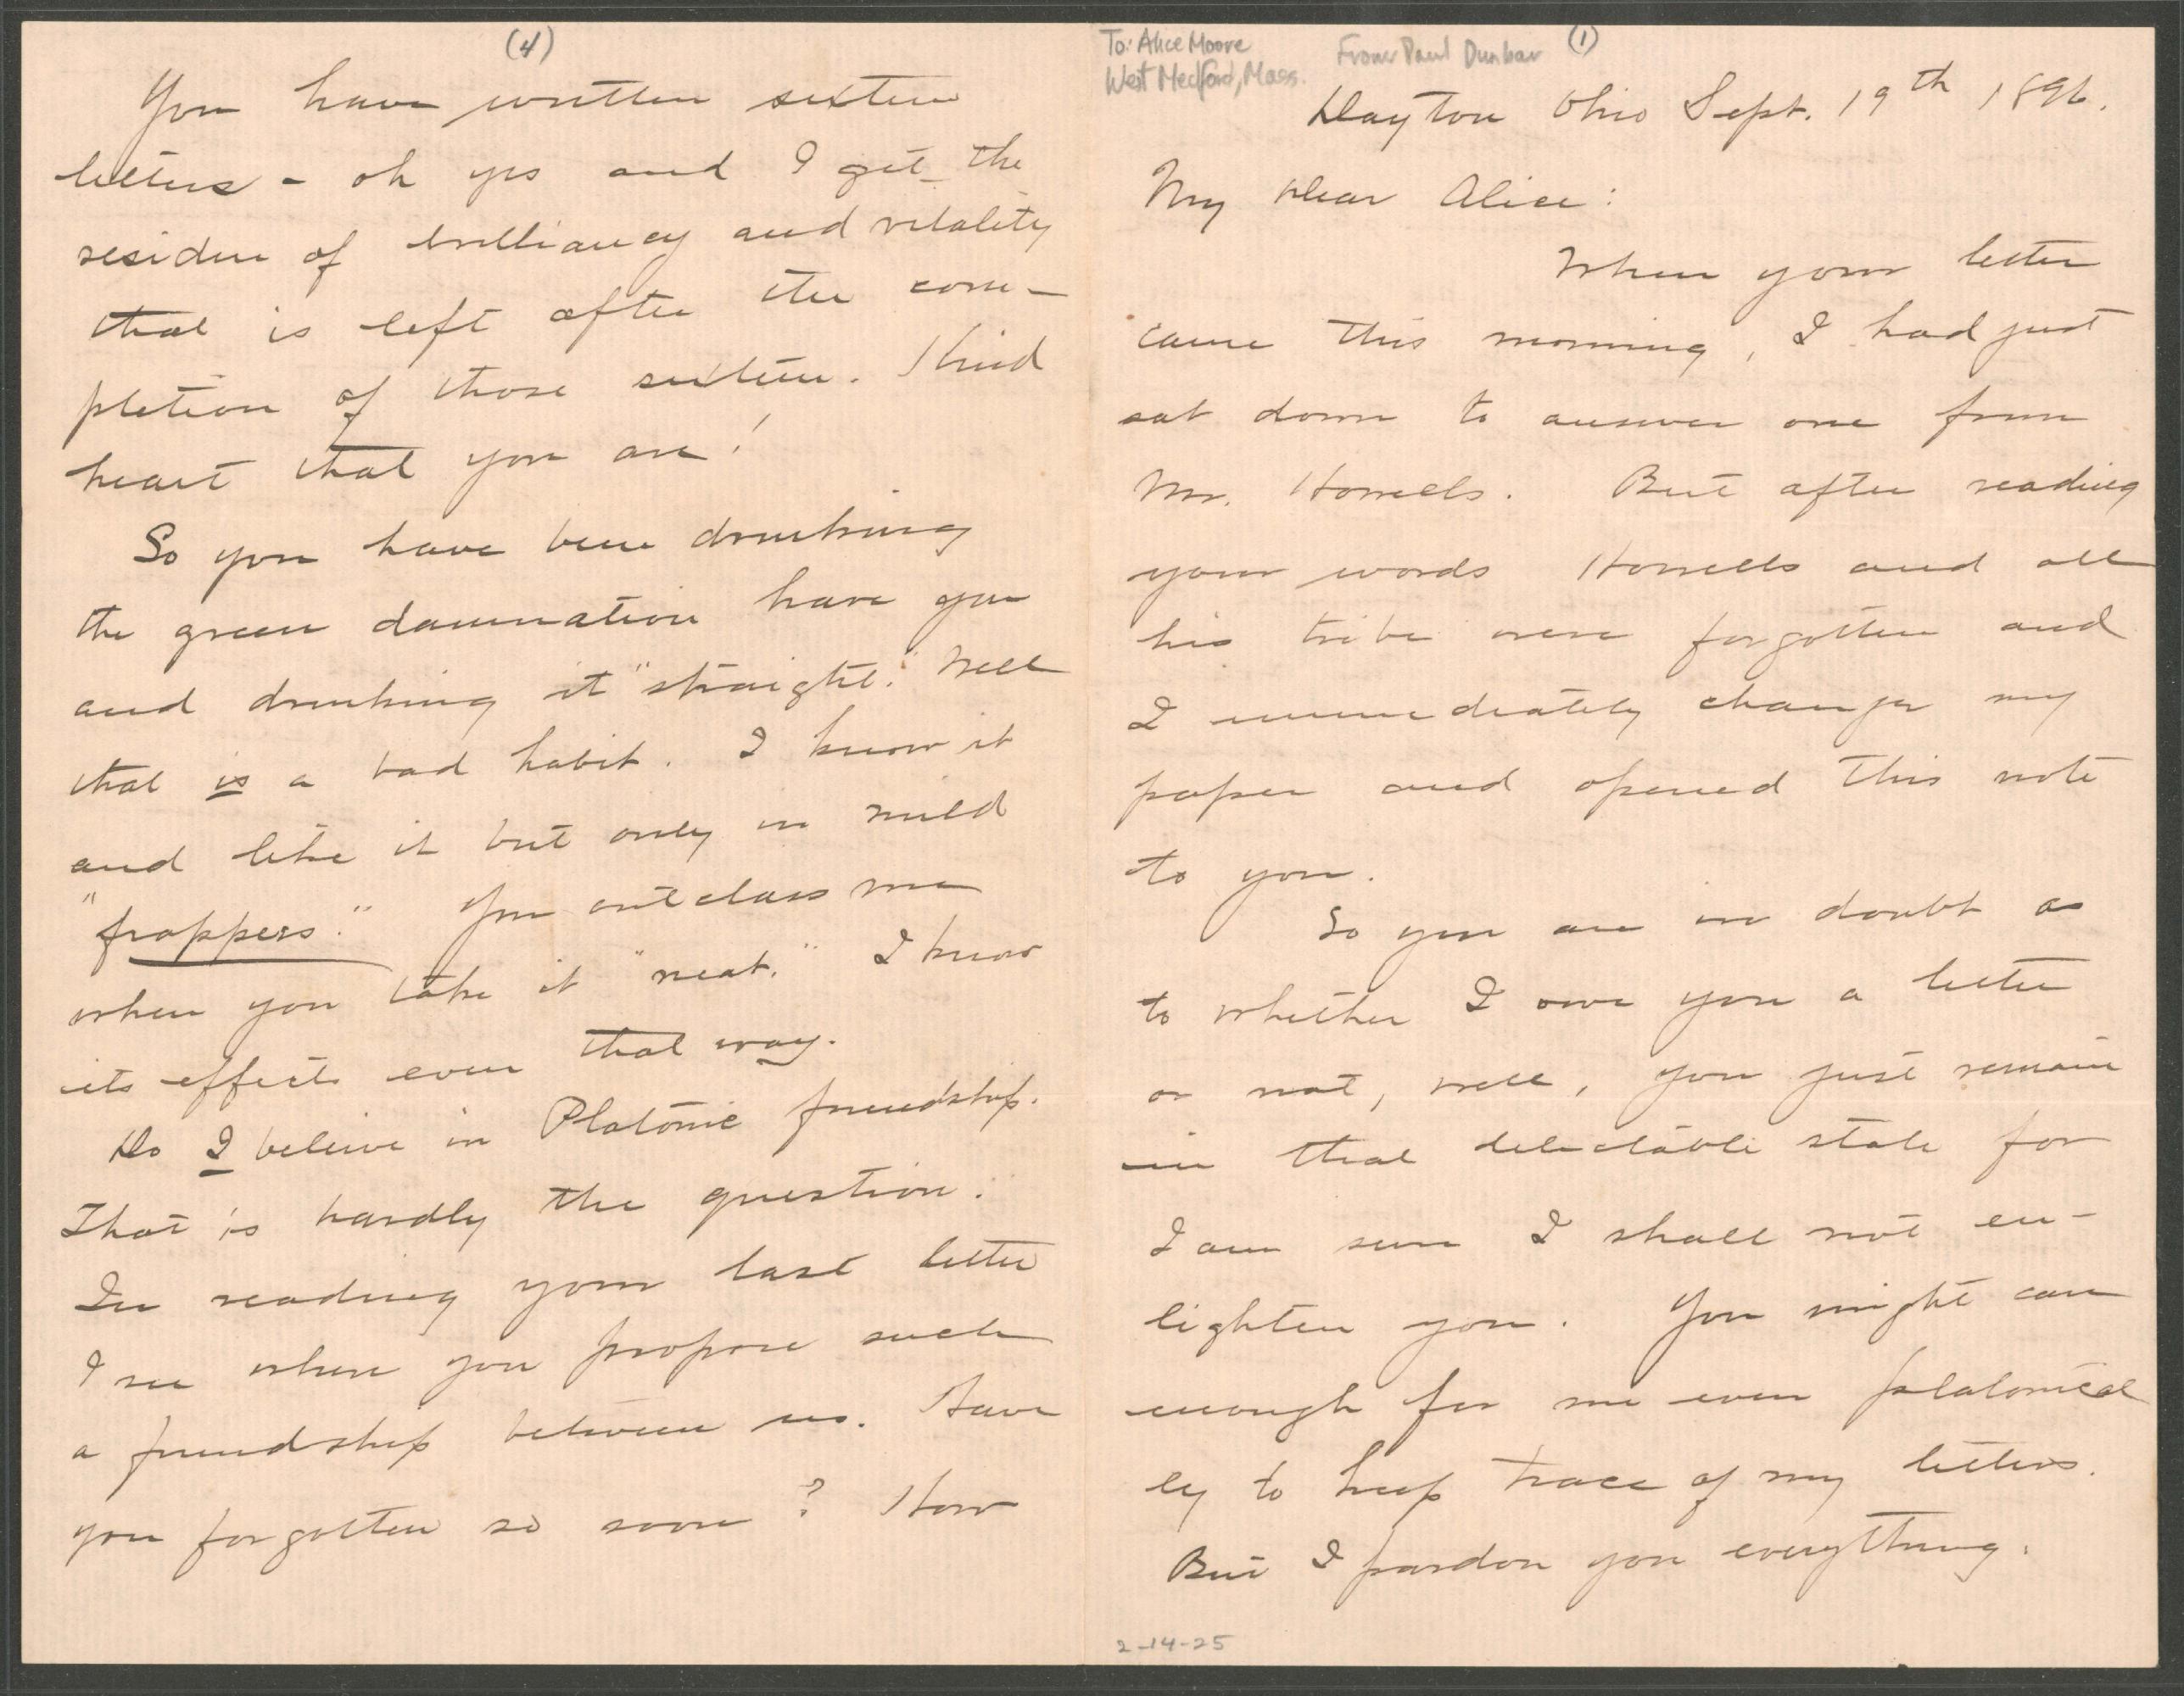 (4)
You have written sixteen
letters - oh yes and I get the
residue of brilliancy and vitality
that is left after the com-
pletion of those sixteen. Kind
heart that you are!
So you have been drinking
the green damnation have you
and drinking it "straight." Well
that is a bad habit. I know it
and like it but only in mild
"frappers." You outclass me
when you take it "neat." I know
its effects even that way.
Do I believe in Platonic friendship.
That is hardly the question.
In reading your last letter
I see where you propose such
a friendship between us. Have
you forgotten so soon? How
To: Alice Moore
West Medford, Mass.
From Paul Dunbar
(1)
Dayton Ohio Sept. 19th 1896.
My dear Alice:
When your letter
came this morning, I had just
sat down to answer one from
Mr. Howells. But after reading
your words Howells and all
his tribe were forgotten and
I immediately changed my
paper and opened this note
to you.
So you are in doubt as
to whether I owe you a letter
or not, well, you just remain
in that delectable state for
I am sure I shall not en-
lighten you. You might care
enough for me even platonical
ly to keep trace of my letters.
But I pardon you everything.
2-14-25